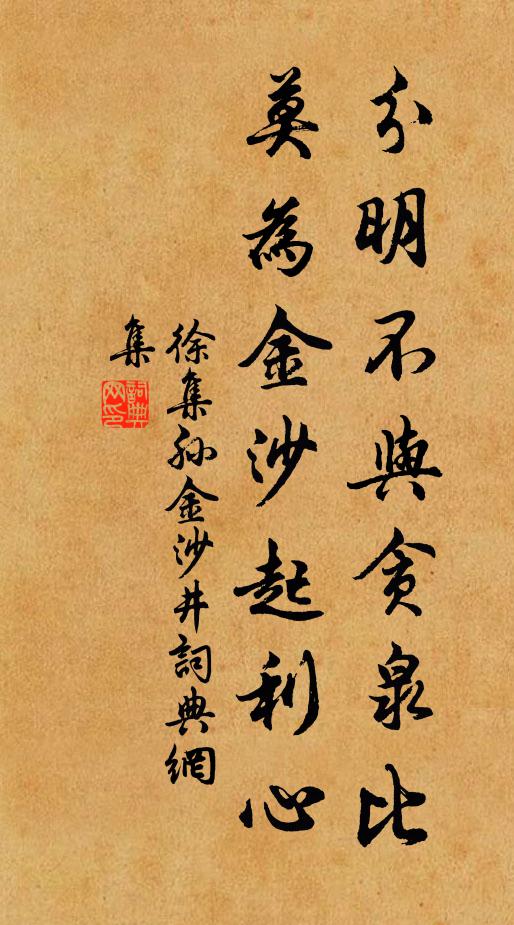 分明不與貪泉比
莫為金沙起利心
徐集孫金沙井詞典網
集
詞典
网印